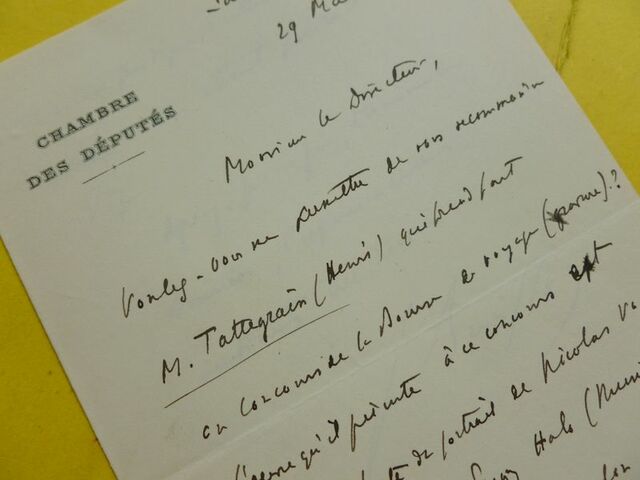 29 Ma
CHAMBRE
DES DÉPUTÉS
Monsieur le Directeur,
Voulez-vous me permettre de vous recommander
M. Tattegrain (Henri) qui prend part
au concours de la Bourse de voyage (gravure)?
qu'il présente à ce concours est
portrait de Nicolas
Hals